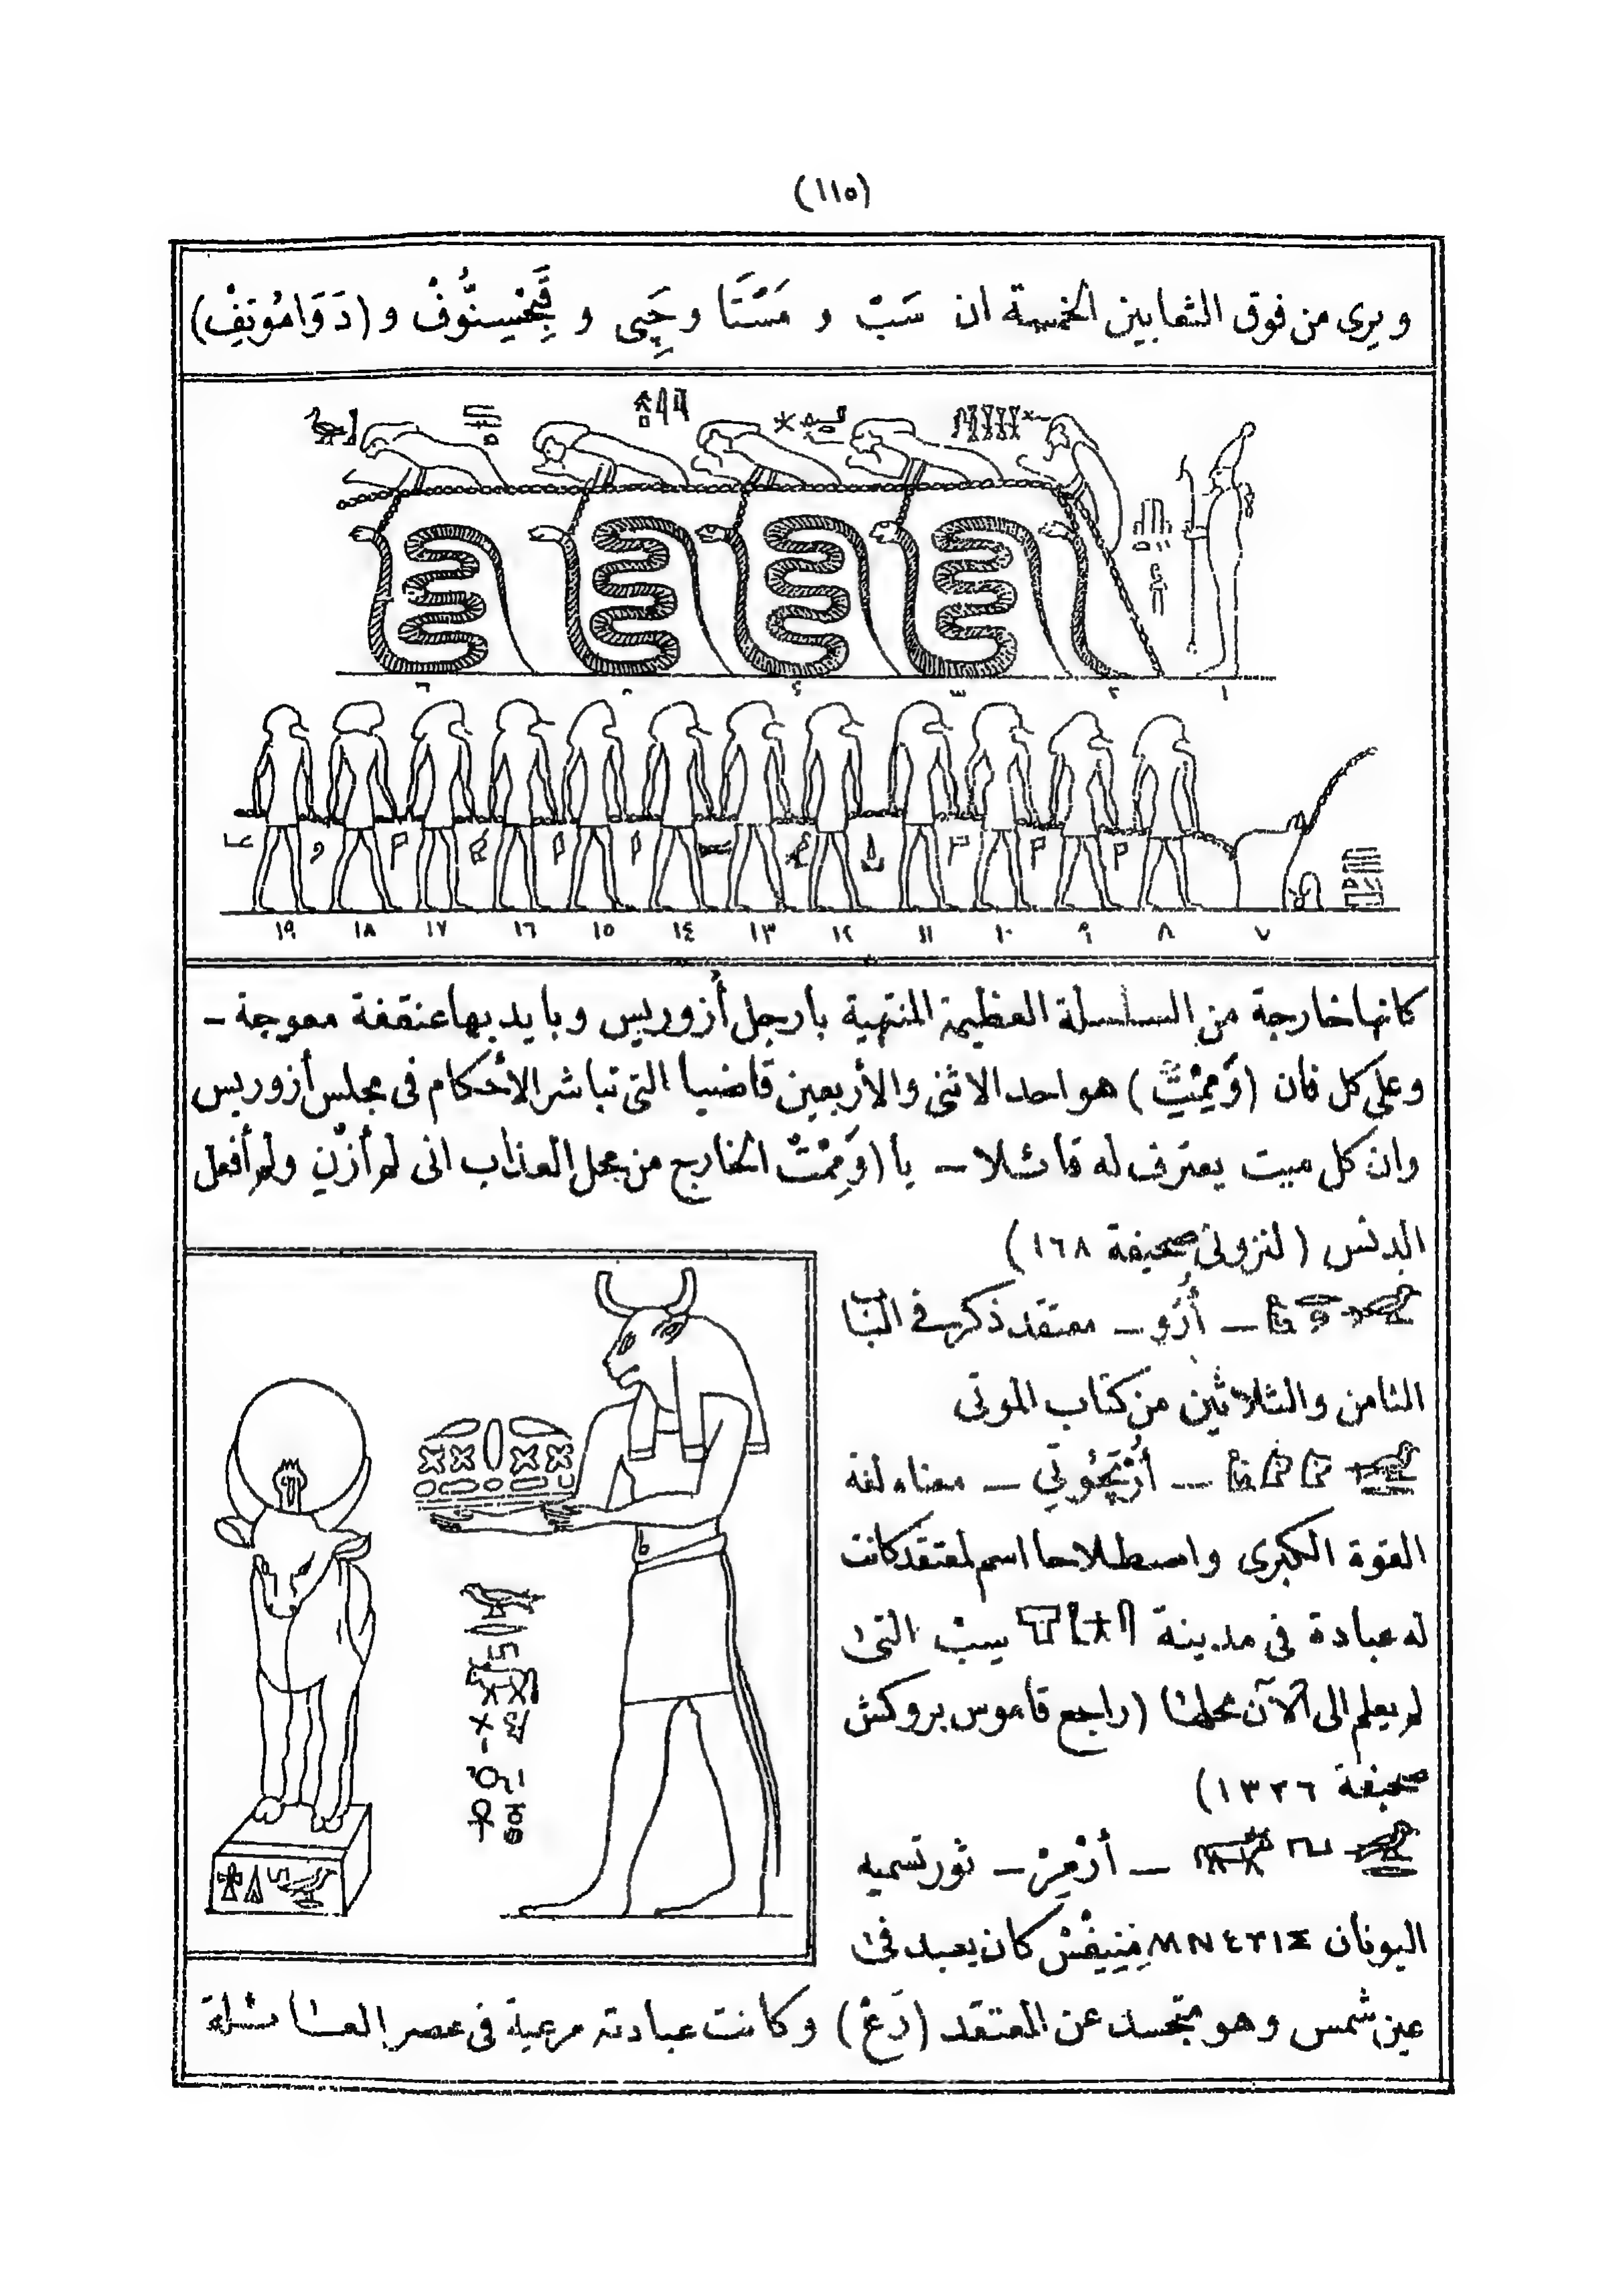 (١١٥)
ويرى من فوق الثعابين الخمسة ان سَبْ و مَسْتَا وحَپِى و قَبِحْسِنُّوفْ و (دَوَامُوتِفْ)
١ ٢ ٣ ٤ ٥ ٦
٧ ٨ ٩ ١٠ ١١ ١٢ ١٣ ١٤ ١٥ ١٦ ١٧ ١٨ ١٩
كانها خارجة من السلسلة العظيمة المنتهية بارجل أزوريس وبايديها عنقفة معوجة -
وعلى كل فان (وَمِمْتِتْ) هو احد الاثنى والأربعين قاضيا التى تباشر الأحكام فى مجلس أزوريس
وان كل ميت يعترف له قائلا - يا (وَمِمْتْ الخارج من محل العذاب انى لم أزْنِ ولم أفعل
الدنس (لنزونى صحيفة ١٦٨)
- أُرُو - معتقد ذكر فى الباب
الثامن والثلاثين من كتاب الموتى
- معناه لغة
القوة الكبرى واصطلاحا اسم لمعتقد كانت
له عبادة فى مدينة سِبْ التى
لم يعلم الى الآن محلها (راجع قاموس بروكش
صحيفة ١٣٢٦)
- أرْمِرْ - ثور تسميه
اليونان مِنِيفْسْ كان يعبد فى
عين شمس وهو متجسد عن المعتقد (رَعْ) وكانت عبادته مرعية فى عصر العائلة